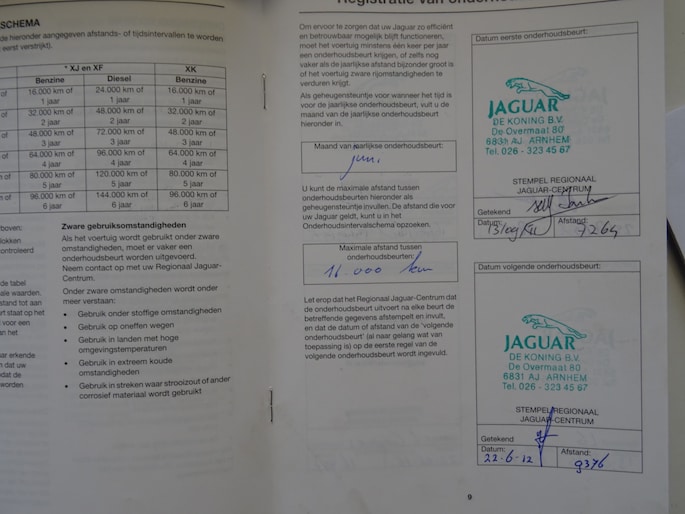 SCHEMA
de hieronder aangegeven afstands- of tijdsintervallen te worden
eerst verstrijkt).
* XJ en XF
XK
Benzine
Diesel
Benzine
of
16.000 km of
1 jaar
24.000 km of
1 jaar
16.000 km of
1 jaar
of
32.000 km of
2 jaar
48.000 km of
2 jaar
32.000 km of
2 jaar
of
48.000 km of
3 jaar
72.000 km of
3 jaar
48.000 km of
3 jaar
of
64.000 km of
4 jaar
96.000 km of
4 jaar
64.000 km of
4 jaar
of
80.000 km of
5 jaar
120.000 km of
5 jaar
80.000 km of
5 jaar
of
96.000 km of
6 jaar
144.000 km of
6 jaar
96.000 km of
6 jaar
rboven:
lokken
controleerd
de tabel
ale waarden.
stand tot aan
rt staat op het
voor een
an het
ar erkende
n dat uw
odat de
worden
Zware gebruiksomstandigheden
Als het voertuig wordt gebruikt onder zware
omstandigheden, moet er vaker een
onderhoudsbeurt worden uitgevoerd.
Neem contact op met uw Regionaal Jaguar-
Centrum.
Onder zware omstandigheden wordt onder
meer verstaan:
• Gebruik onder stoffige omstandigheden
• Gebruik op oneffen wegen
• Gebruik in landen met hoge
omgevingstemperaturen
• Gebruik in extreem koude
omstandigheden
• Gebruik in streken waar strooizout of ander
corrosief materiaal wordt gebruikt
Registratie van onderhou
Om ervoor te zorgen dat uw Jaguar zo efficiënt
en betrouwbaar mogelijk blijft functioneren,
moet het voertuig minstens één keer per jaar
een onderhoudsbeurt krijgen, of zelfs nog
vaker als de jaarlijkse afstand bijzonder groot is
of het voertuig zware rijomstandigheden te
verduren krijgt.
Als geheugensteuntje voor wanneer het tijd is
voor de jaarlijkse onderhoudsbeurt, vult u de
maand van de jaarlijkse onderhoudsbeurt
hieronder in.
Maand van jaarlijkse onderhoudsbeurt:
juni
U kunt de maximale afstand tussen
onderhoudsbeurten hieronder als
geheugensteuntje invullen. De afstand die voor
uw Jaguar geldt, kunt u in het
Onderhoudsintervalschema opzoeken.
Maximale afstand tussen
onderhoudsbeurten:
16.000 km
Let erop dat het Regionaal Jaguar-Centrum dat
de onderhoudsbeurt uitvoert na elke beurt de
betreffende gegevens afstempelt en invult,
en dat de datum of afstand van de 'volgende
onderhoudsbeurt' (al naar gelang wat van
toepassing is) op de eerste regel van de
volgende onderhoudsbeurt wordt ingevuld.
Datum eerste onderhoudsbeurt:
JAGUAR
DE KONING B.V.
De Overmaat 80
6831 AJ ARNHEM
Tel. 026 - 323 45 67
STEMPEL REGIONAAL
JAGUAR-CENTRUM
Getekend
Datum:
Afstand:
7264
Datum volgende onderhoudsbeurt:
JAGUAR
DE KONING B.V.
De Overmaat 80
6831 AJ ARNHEM
Tel. 026 - 323 45 67
STEMPEL REGIONAAL
JAGUAR-CENTRUM
Getekend
Datum:
22-6-12
Afstand:
9376
9